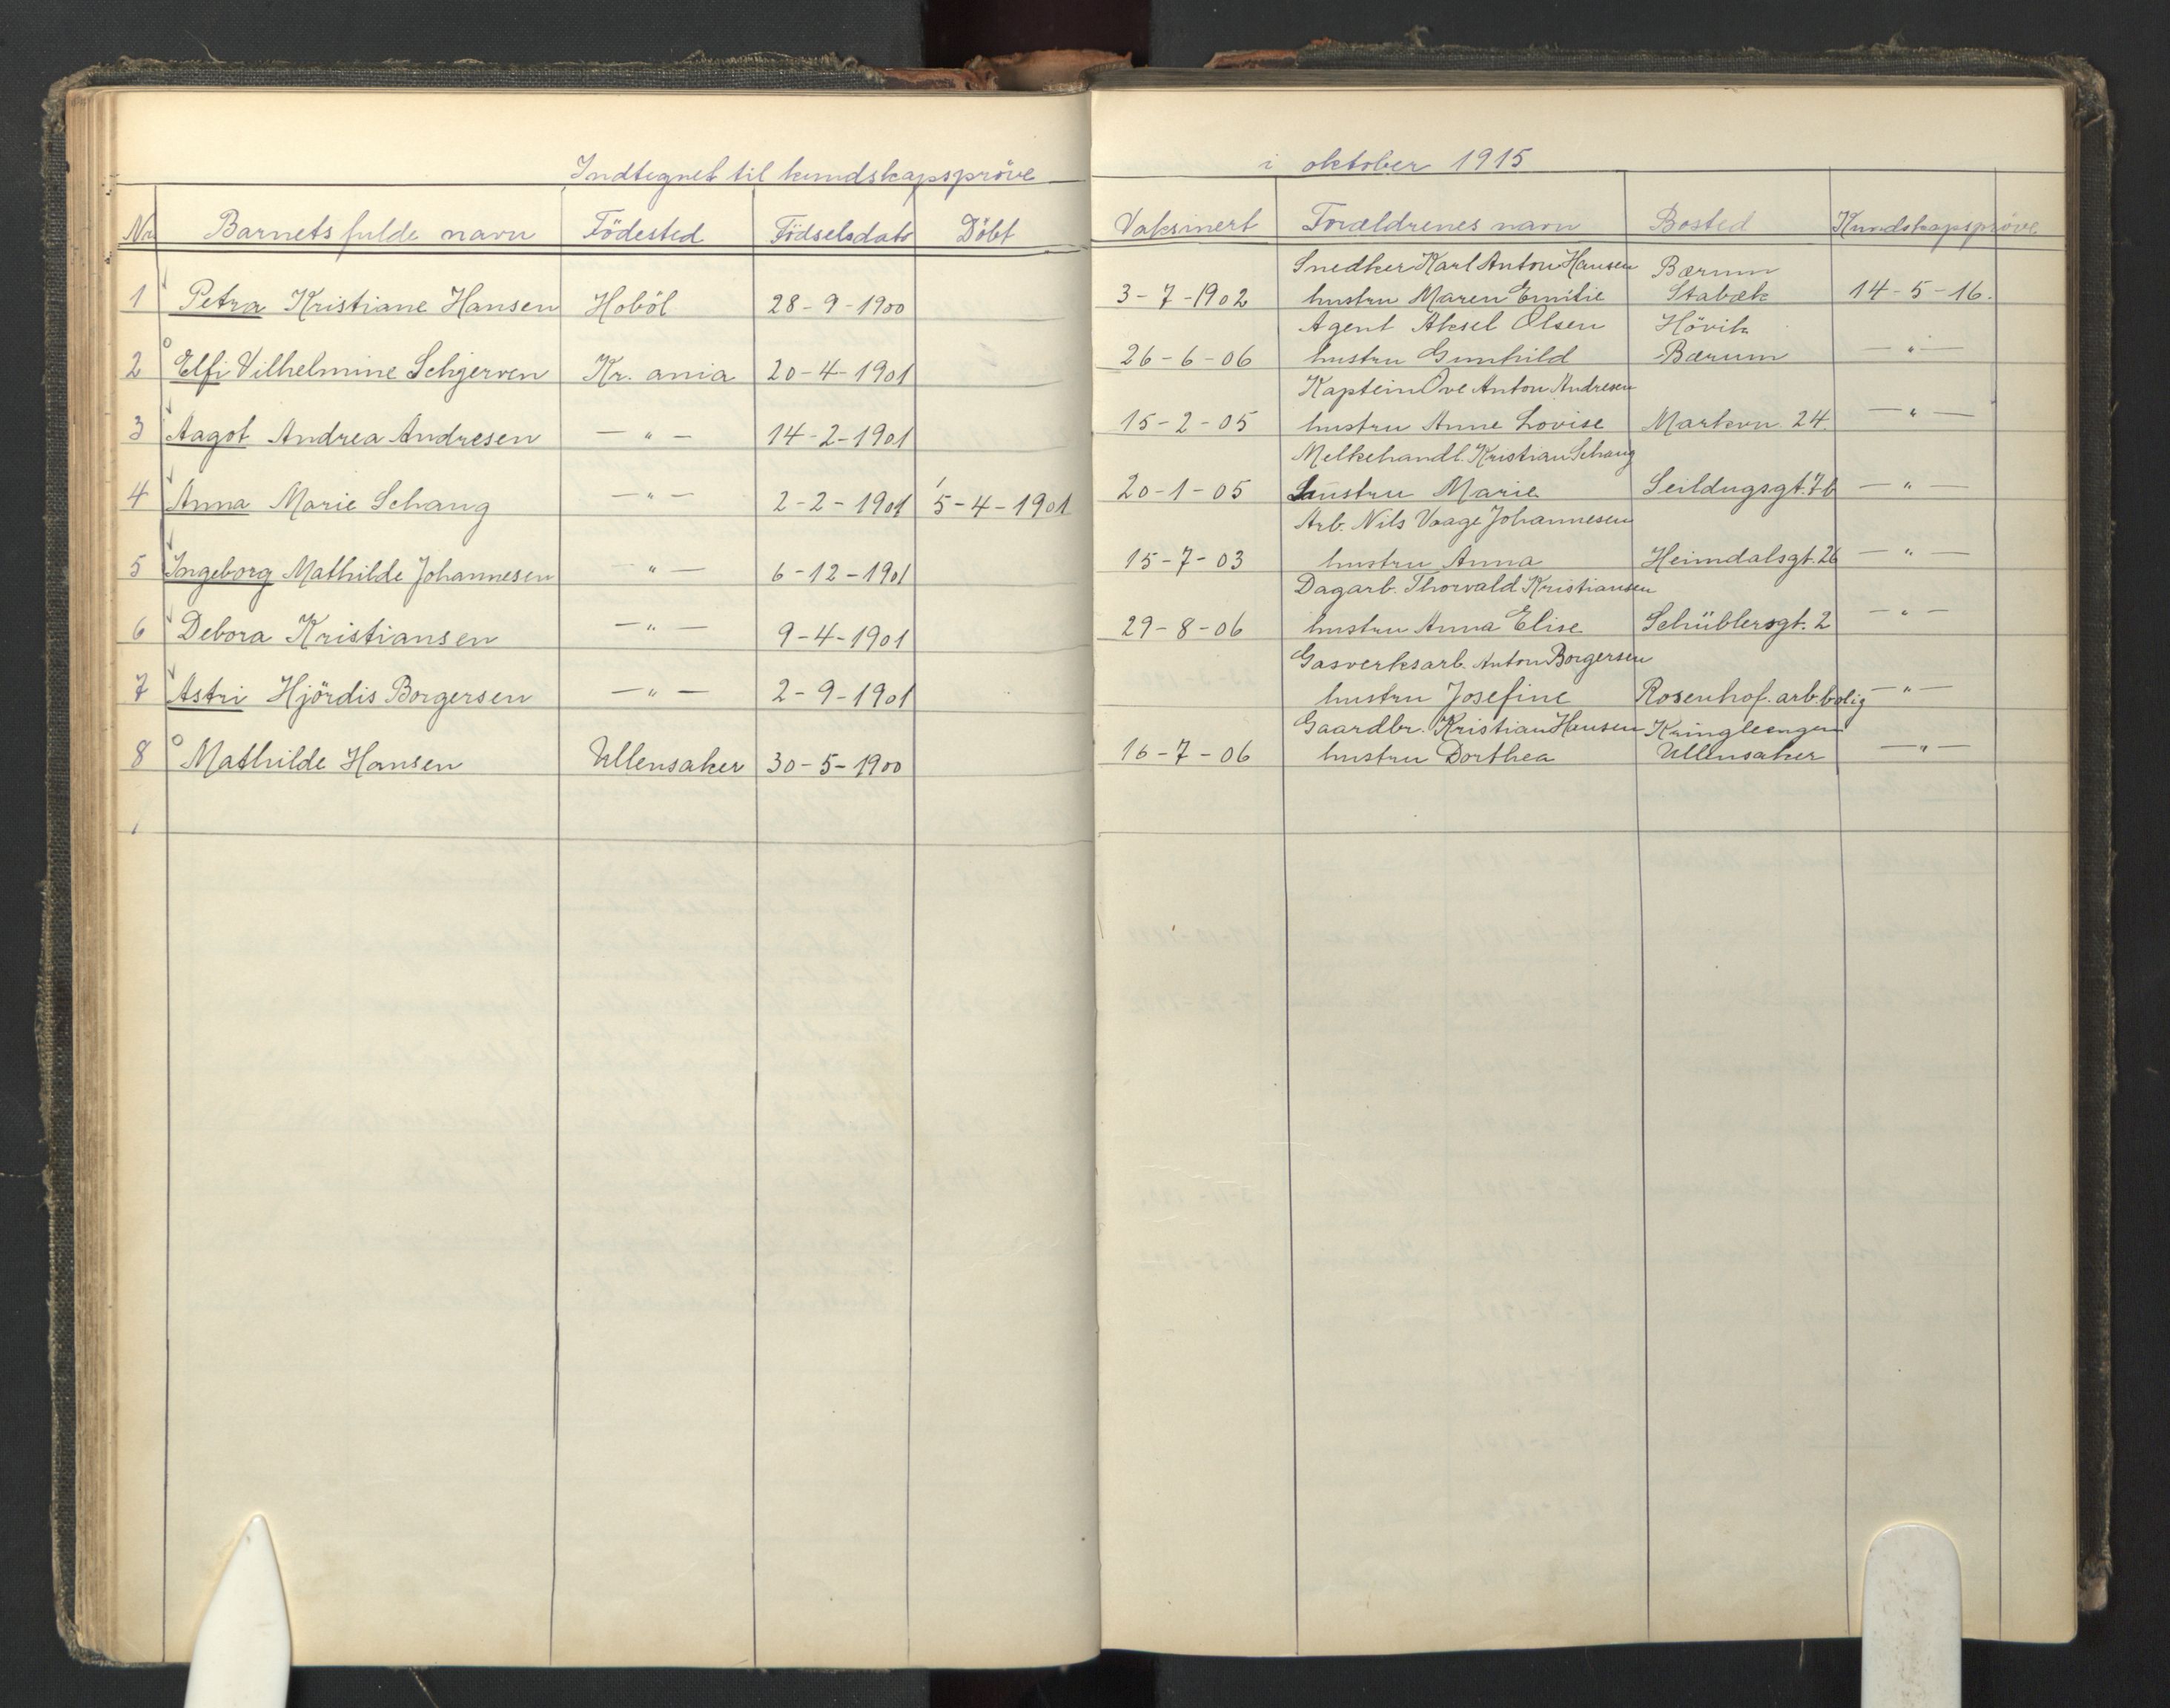 Indtegnet til kundskapspröve i oktober 1915
No Barnets fulde navn Födested Födselsdato Döbt Vaksinert Forældrenes navn Bosted Kundskapspröve
Snedker Karl Anton Hansen Bærum
1 Petra Kristiane Hansen Hoböl 28-9-1900 3-7-1902 hustru Maren Emilie Stabæk 14-5-16.
Agent Aksel Olsen Hövik
2 Elfi Vilhelmine Schjerven Kr.ania 20-4-1901 26-6-06 hustru Gunhild Bærum — " —
Kaptein Ove Anton Andresen
3 Aagot Andrea Andresen — " — 14-2-1901 15-2-05 hustru Anne Lovise Markvn. 24. — " —
Melkehandl. Kristian Schang
4 Anna Marie Schang — " — 2-2-1901 5-4-1901 20-1-05 hustru Marie Seildugsgt. 7b — " —
Arb. Nils Vaage Johannesen
5 Ingeborg Mathilde Johannesen — " — 6-12-1901 15-7-03 hustru Anna Heimdalsgt. 26 — " —
Dagarb. Thorvald Kristiansen
6 Debora Kristiansen — " — 9-4-1901 29-8-06 hustru Anna Elise Schüblersgt. 2 — " —
Gasverksarb. Anton Borgersen
7 Astri Hjördis Borgersen — " — 2-9-1901 hustru Josefine Rosenhof. arb.bolig — " —
Gaardbr. Kristian Hansen Kringleengen
8 Mathilde Hansen Ullensaker 30-5-1900 16-7-06 hustru Dorthea Ullensaker — " —